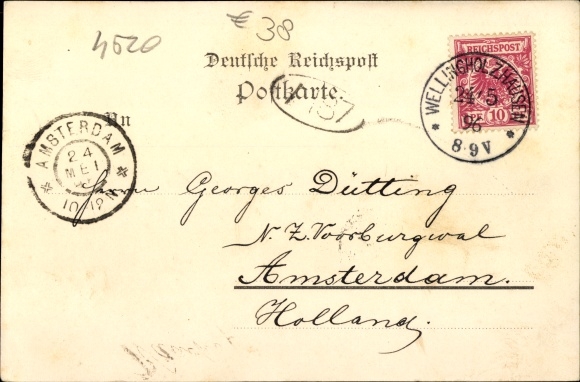 4520
€ 38
Deutsche Reichspost
Postkarte
187
REICHSPOST
10
WELLINGHOLZHAUSEN
24 5
96
8-9V
An
AMSTERDAM
24
MEI
10-12
Herrn Georges Dütting
N. Z. Voorburgwal
Amsterdam.
Holland.